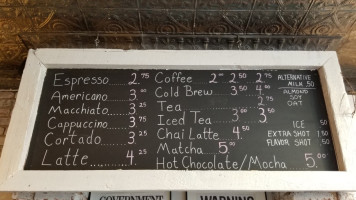 Espresso 2.75
Americano 3.00
Macchiato 3.25
Cappuccino 3.75
Cortado 3.25
Latte 4.25
Coffee 2.00 2.50 2.75
Cold Brew 3.50 4.00
Tea 2.75
Iced Tea 3.00 3.50
Chai Latte 4.50
Matcha 5.00
Hot Chocolate/Mocha 5.00
ALTERNATIVE
MILK .50
ALMOND
SOY
OAT
ICE .50
EXTRA SHOT 1.50
FLAVOR SHOT .50
GOVERNMENT
WARNING